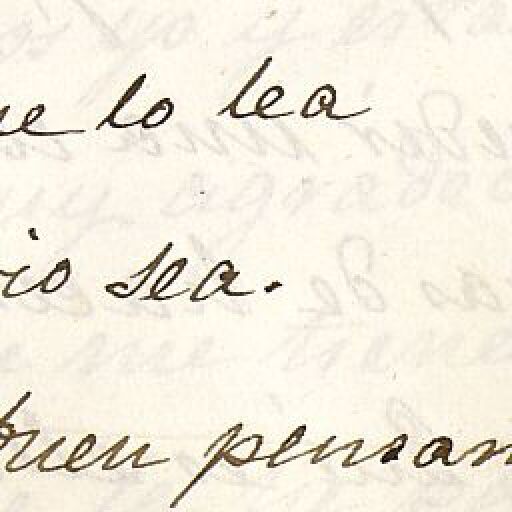 ue lo lea
io sea.
buen pensam